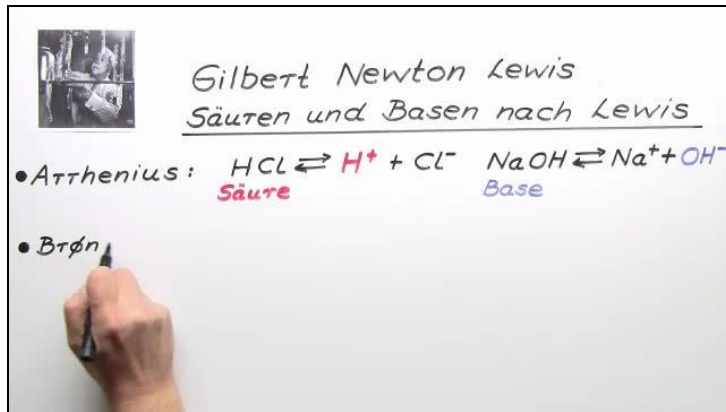 Gilbert Newton Lewis
Säuren und Basen nach Lewis
• Arrhenius: HCl ⇄ H⁺ + Cl⁻ NaOH ⇄ Na⁺ + OH⁻
Säure Base
• Brøn